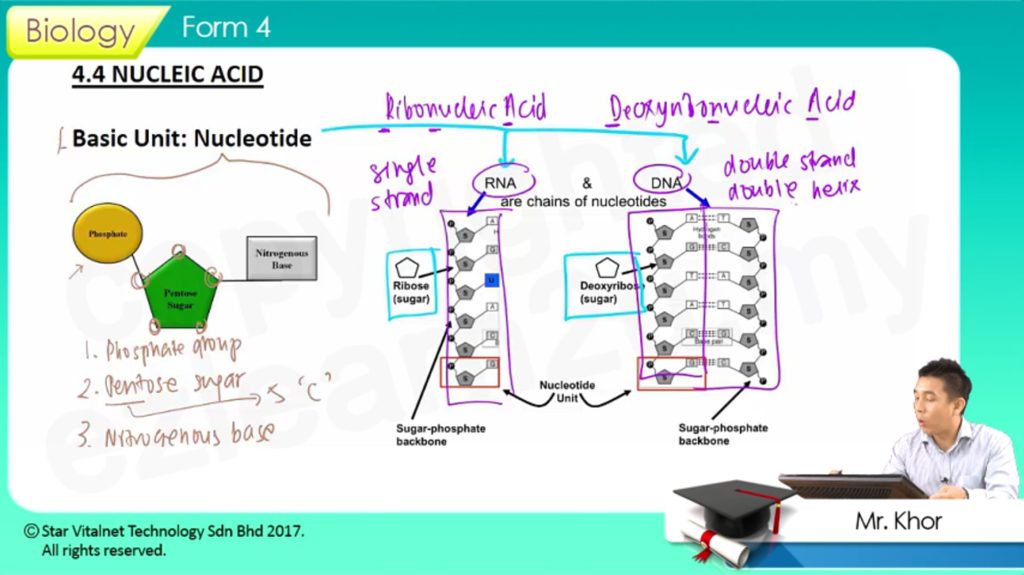 Biology
Form 4
4.4 NUCLEIC ACID
Ribonucleic Acid
Deoxyribonucleic Acid
Basic Unit: Nucleotide
single
strand
double strand
double helix
RNA
&
DNA
are chains of nucleotides
Phosphate
Nitrogenous
Base
Pentose
Sugar
Ribose
(sugar)
Deoxyribose
(sugar)
Hydrogen
bonds
Base pair
Nucleotide
Unit
Sugar-phosphate
backbone
Sugar-phosphate
backbone
1. Phosphate group
2. Pentose sugar
5 'C'
3. Nitrogenous base
Mr. Khor
© Star Vitalnet Technology Sdn Bhd 2017.
All rights reserved.